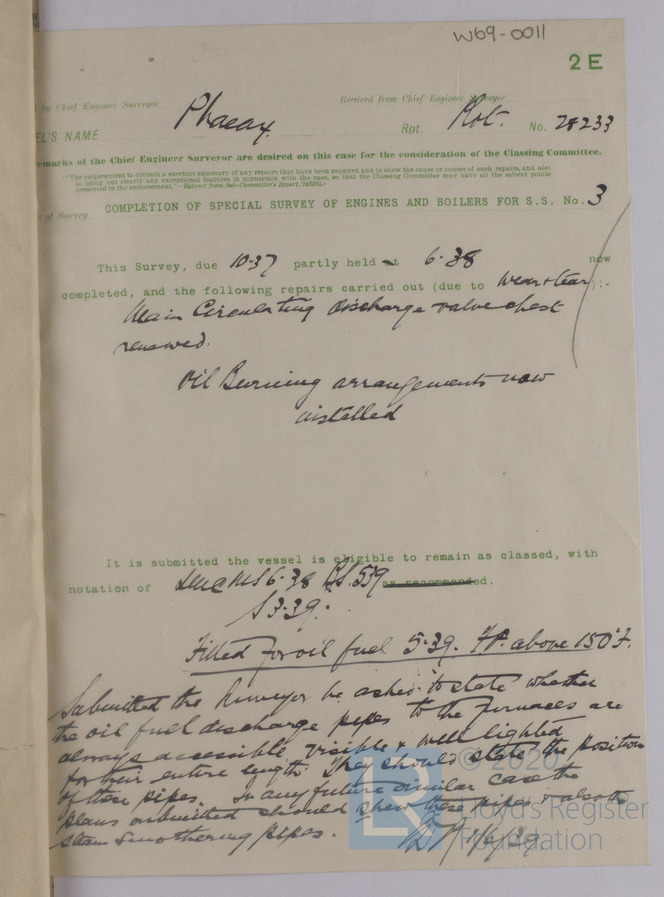 W69-0011
2 E
by Chief Engineer Surveyor
Received from Chief Engineer Surveyor
EL'S NAME Phaeax. Rpt. Rot. No. 28233
emarks of the Chief Engineer Surveyor are desired on this case for the consideration of the Classing Committee.
"The endorsement to contain a succinct summary of any repairs that have been required and to show the cause or causes of such repairs, and also
to bring out clearly any exceptional features in connection with the case, so that the Classing Committee may have all the salient points
presented in the endorsement."—Extract from Sub-Committee's Report,
of Survey COMPLETION OF SPECIAL SURVEY OF ENGINES AND BOILERS FOR S.S. No. 3
This Survey, due 10.37 partly held t 6.38 now
completed, and the following repairs carried out (due to Wear & tear):-
Main Circulating discharge valve chest
renewed.
Oil Burning arrangements now
installed
It is submitted the vessel is eligible to remain as classed, with
notation of LMC MS 6.38 BS. 5.39 as recommended.
S 3.39.
Fitted for oil fuel 5.39. F.P. above 150°F.
Submitted the Surveyor be asked to state whether
the oil fuel discharge pipes to the furnaces are
always accessible, visible & well lighted
for their entire length. They should state the position
of these pipes. In any future similar case the
plans submitted should shew these pipes & also the
steam smothering pipes.
/6/39
© 2020
LR
Lloyd's Register
Foundation